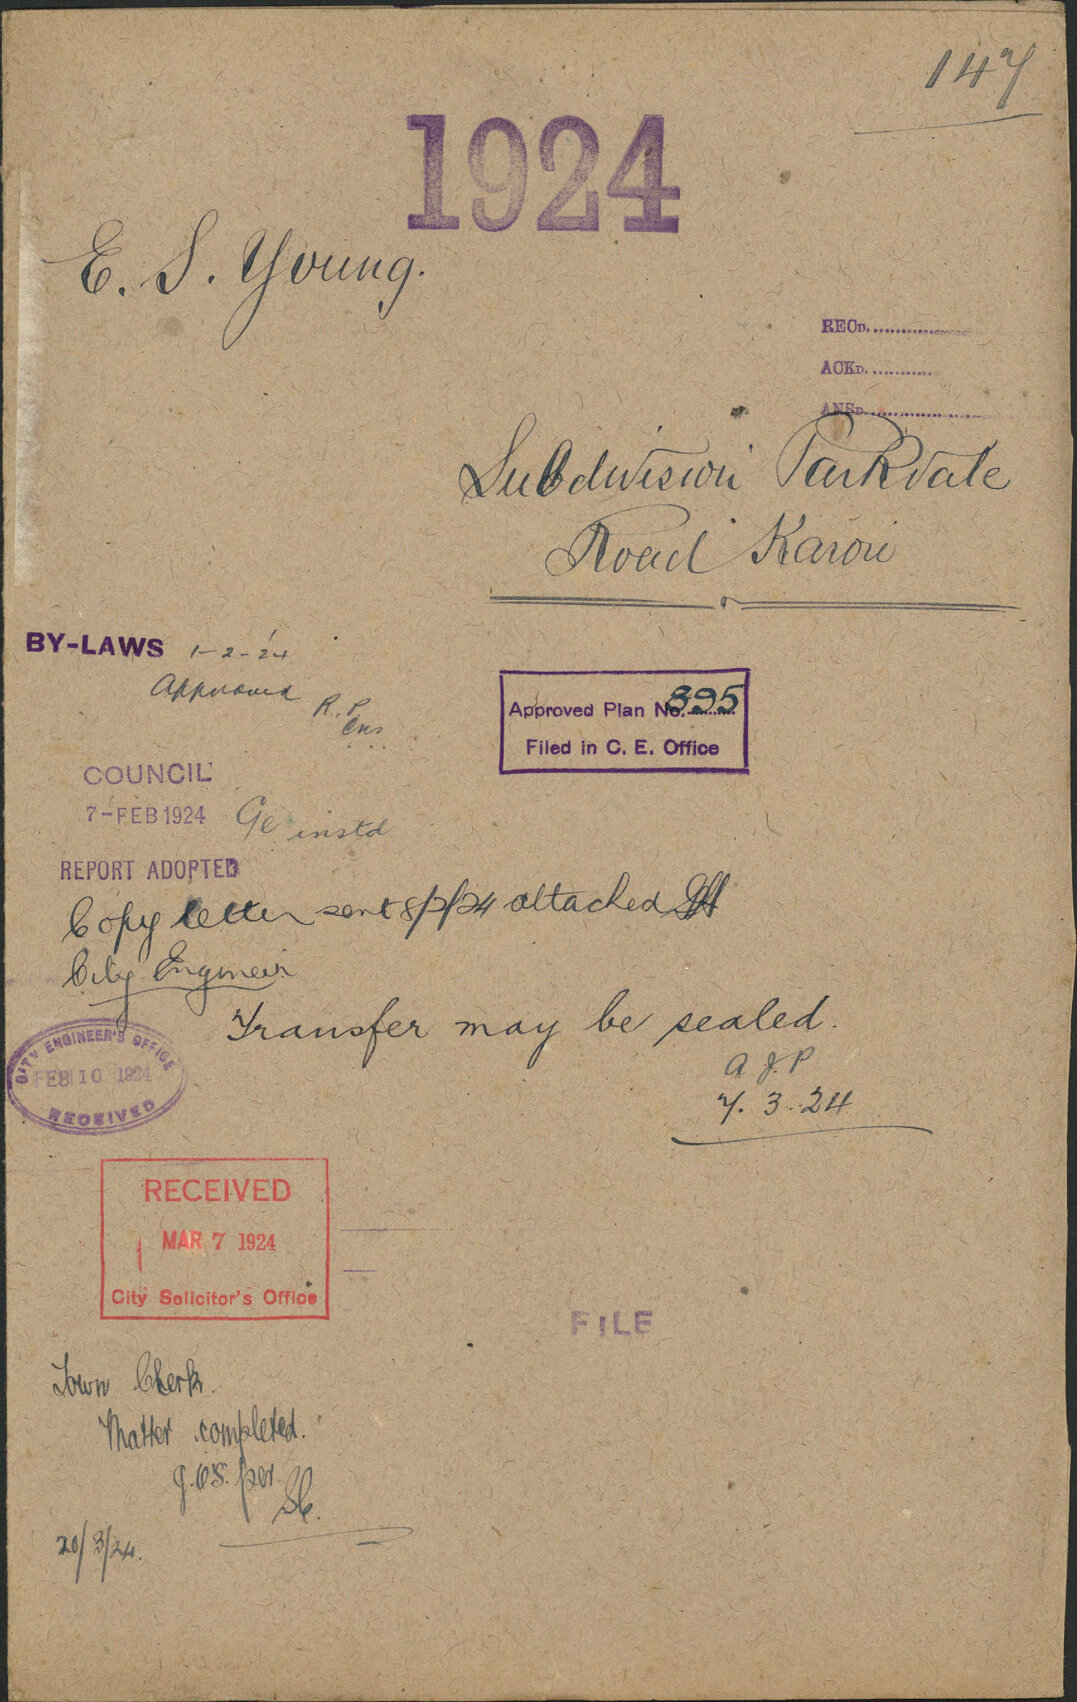 147
1924
E. S. Young.
RECD.
ACKD.
ANSD.
Subdivision Parkvale
Road Karori
BY-LAWS 1-2-24
Approved
R. P.
COUNCIL
7-FEB 1924
instd
REPORT ADOPTED
Approved Plan No. 395
Filed in C. E. Office
Copy letter sent 8/2/24 attached
City Engineer
Transfer may be sealed.
A J. P
7. 3. 24
CITY ENGINEER'S OFFICE
FEB 10 1924
RECEIVED
RECEIVED
MAR 7 1924
City Solicitor's Office
FILE
Town Clerk.
Matter completed.
per
20/3/24.